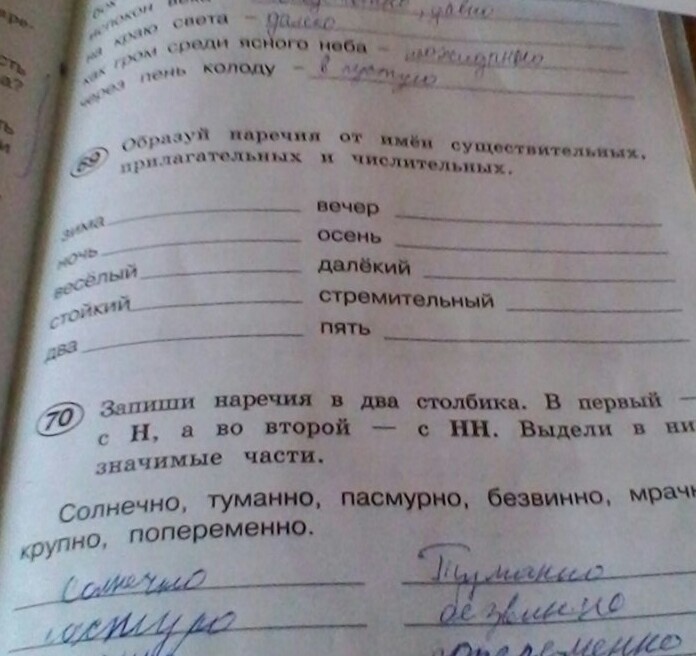 на краю света – далеко
как гром среди ясного неба – неожиданно
через пень колоду – впустую
69 Образуй наречия от имён существительных,
прилагательных и числительных.
зима вечер
ночь осень
весёлый далёкий
стойкий стремительный
два пять
70 Запиши наречия в два столбика. В первый —
с Н, а во второй — с НН. Выдели в ни
значимые части.
Солнечно, туманно, пасмурно, безвинно, мрачн
крупно, попеременно.
Солнечно Туманно
безвинно
попеременно